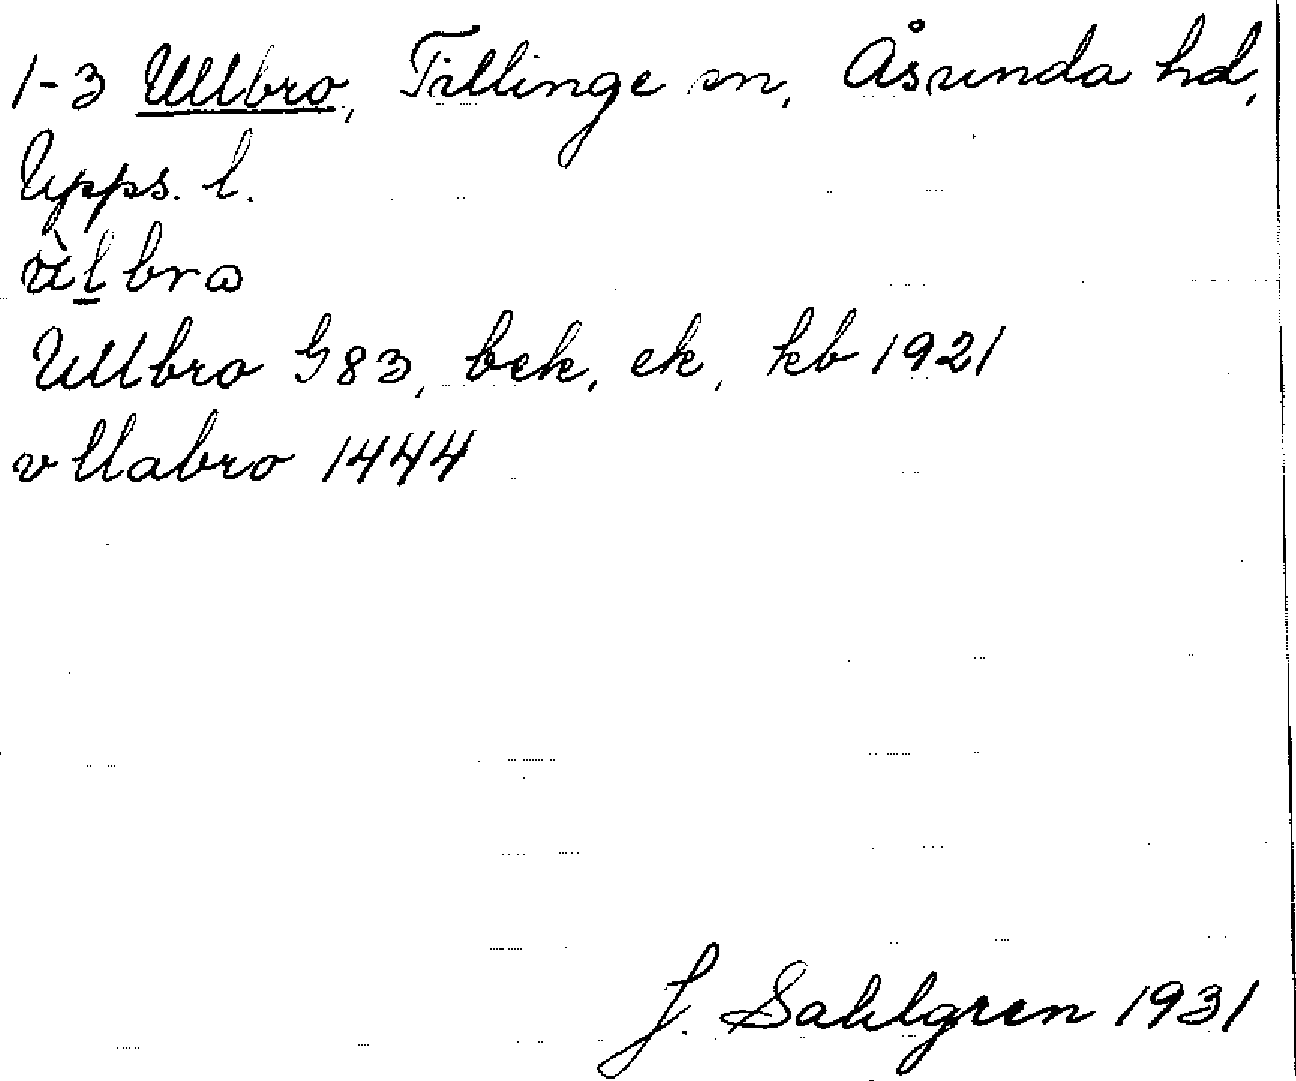 1-3 Ullbro, Tillinge sn, Åsunda hd,
Upps. l.
ùl̲bra
Ullbro G83, bek, ek, kb 1921
vllabro 1444
J. Sahlgren 1931